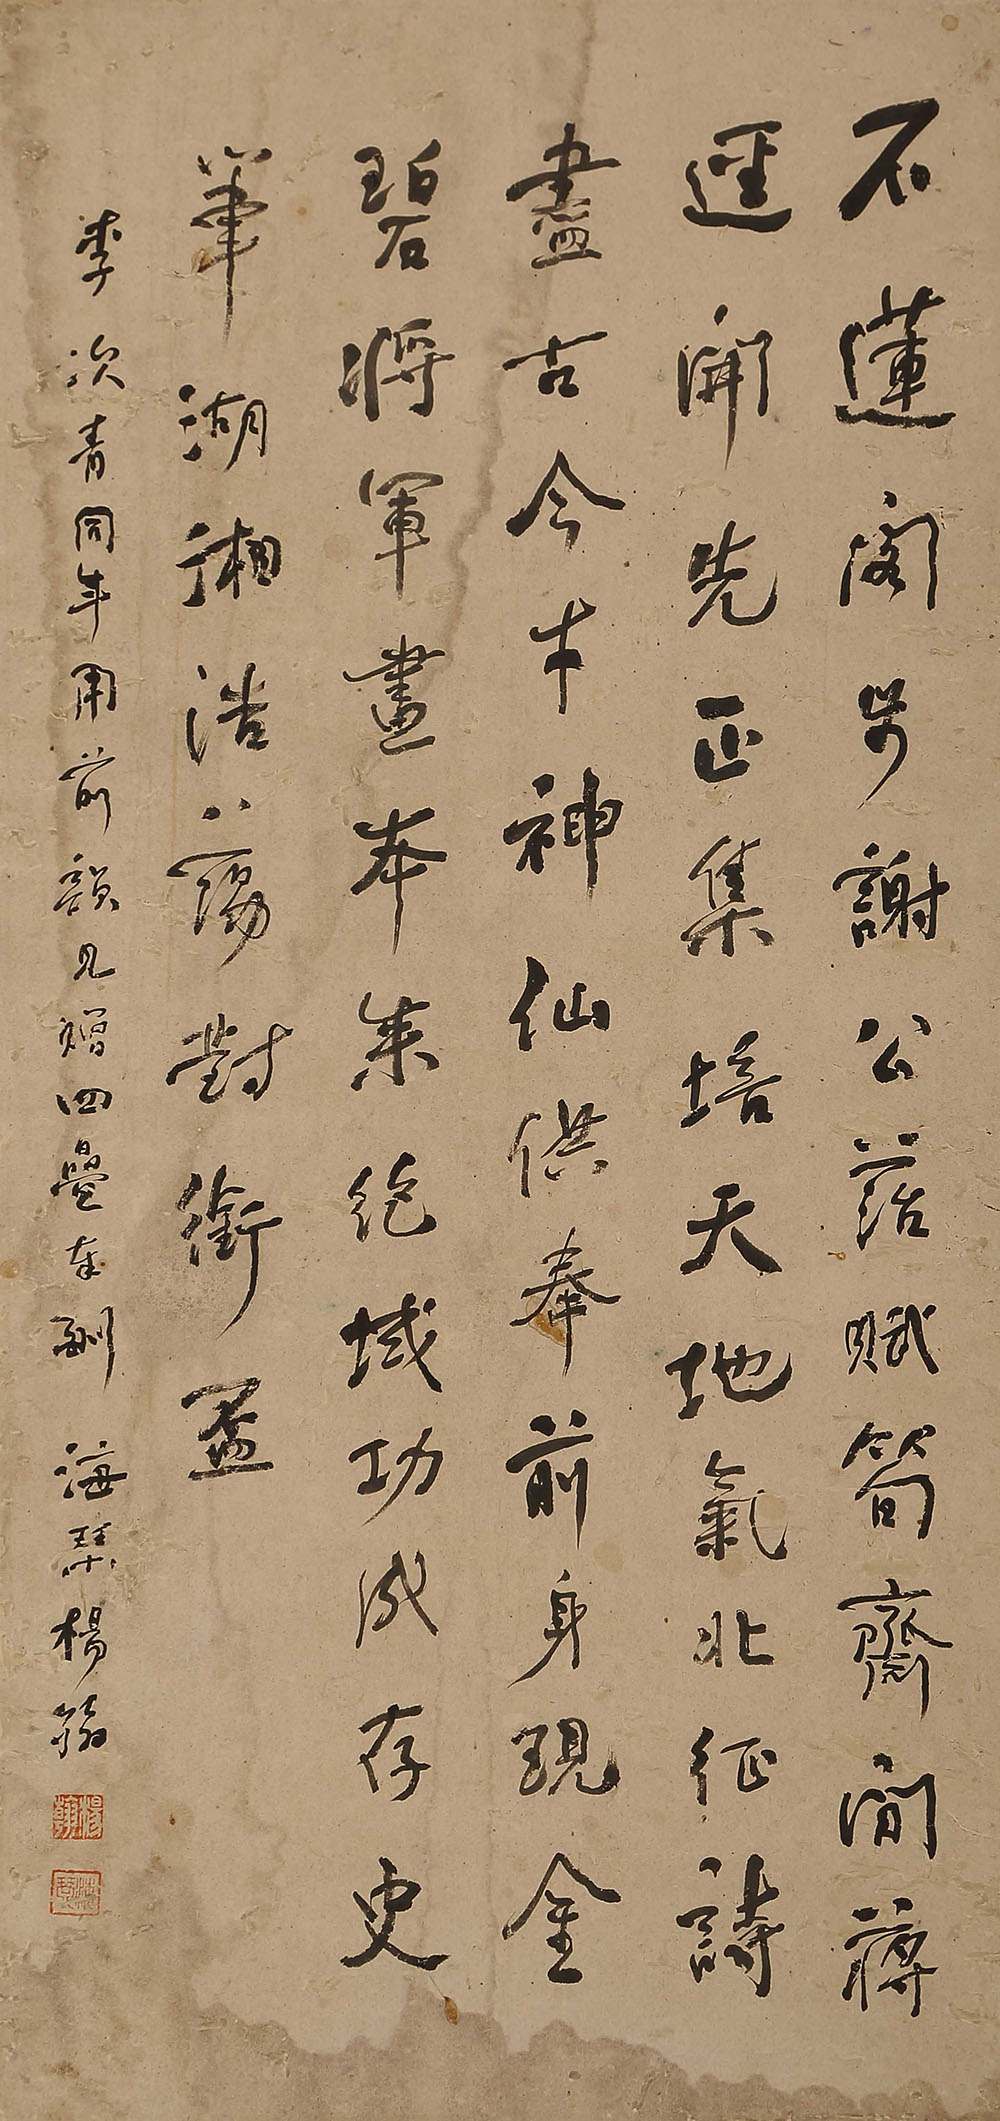 石蓮閣步謝公落賦筍齋閒蔣
逕開先正集培天地氣北征詩
盡古今才神仙供奉前身現金
碧將軍畫本來絕域功成存史
筆湖湘浩蕩對銜盃
李次青同年用前韻見贈四疊奉酬 海琴楊翰
楊翰
海琴